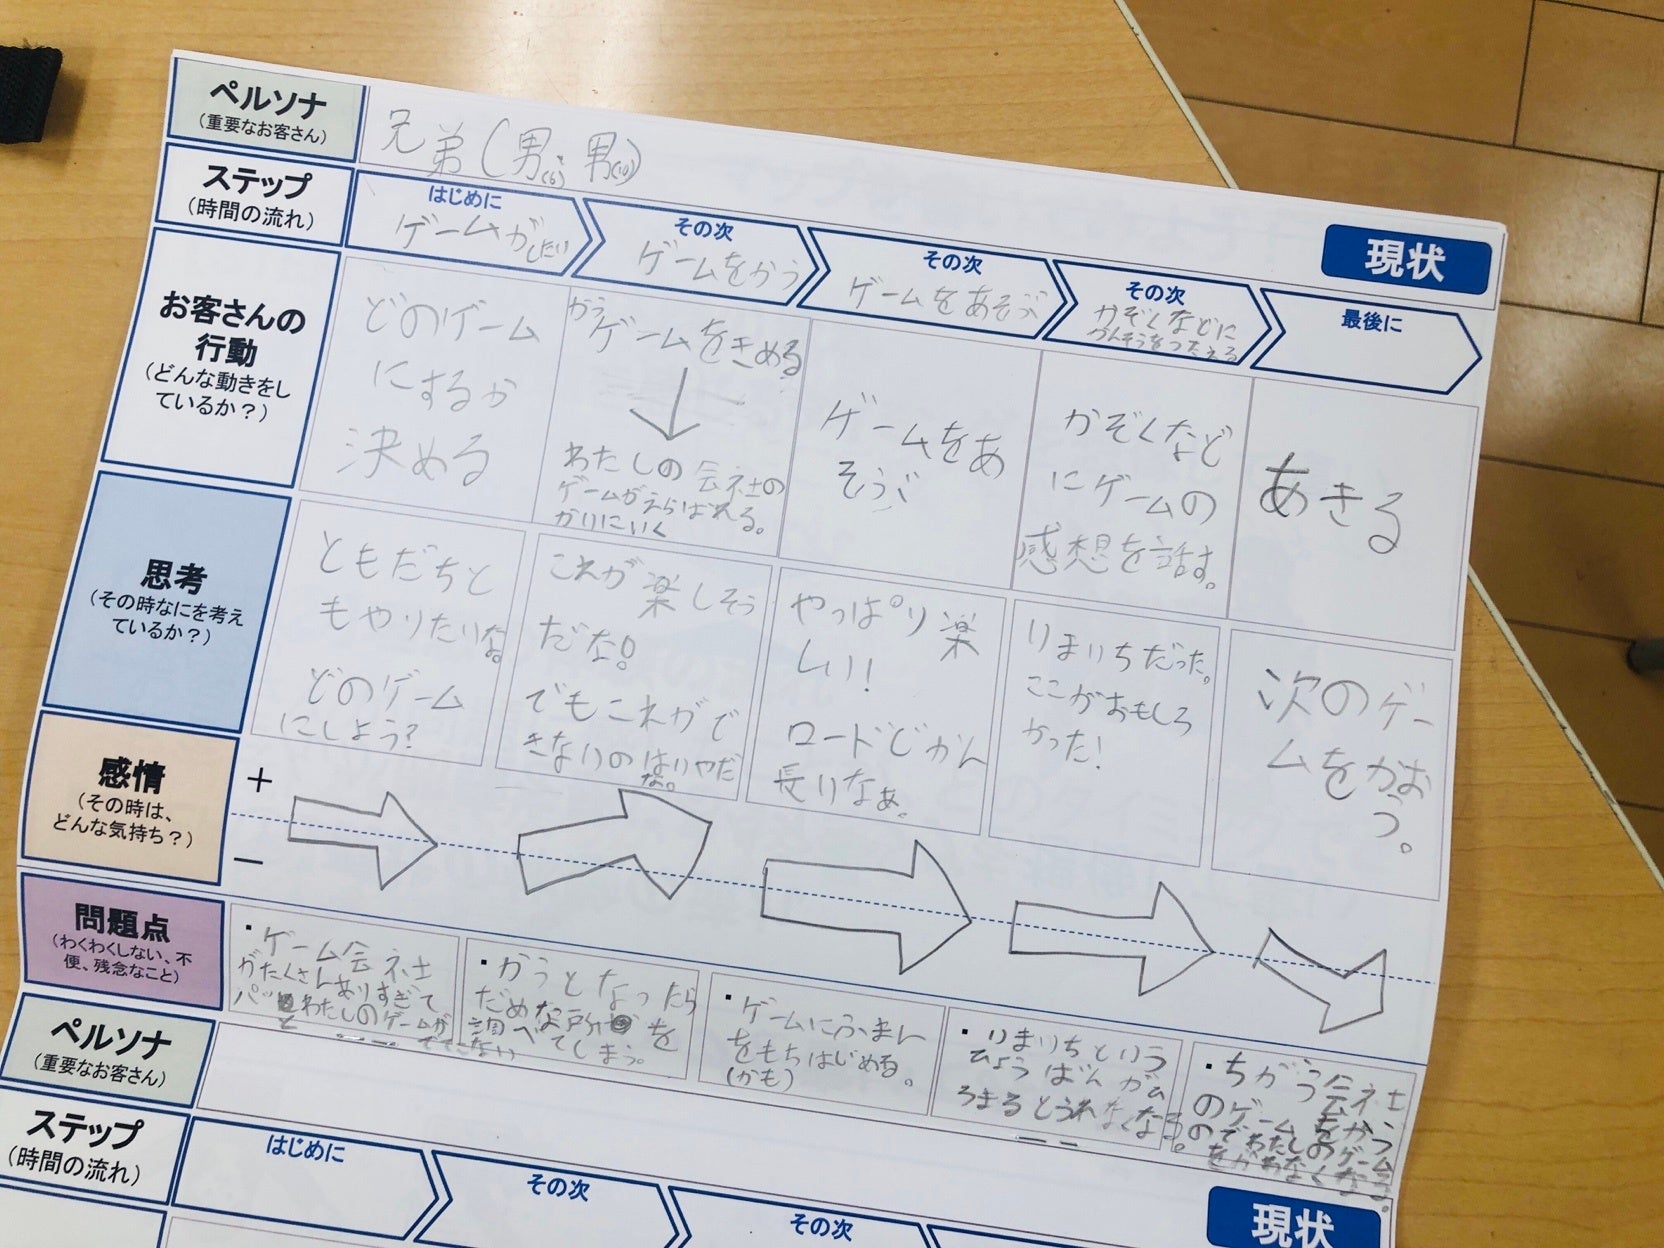 ペルソナ
(重要なお客さん)
兄弟(男(6)男(10))
ステップ
(時間の流れ)
はじめに
ゲームがしたい
その次
ゲームをかう
その次
ゲームをあそぶ
その次
かぞくなどに
かんそうをつたえる
最後に
現状
お客さんの
行動
(どんな動きをし
ているか?)
どのゲーム
にするか
決める
かう
ゲームをきめる
わたしの会社の
ゲームがえらばれる。
かいにいく
ゲームをあ
そぶ
かぞくなど
にゲームの
感想を話す。
あきる
思考
(その時なにを考え
ているか?)
ともだちと
もやりたいな。
どのゲーム
にしよう?
これが楽しそう
だな!
でもこれがで
きないのはいやだ
な。
やっぱり楽
しい!
ロードじかん
長いなぁ。
いまいちだった。
ここがおもしろ
かった!
次のゲー
ムをかお
う。
感情
(その時は、
どんな気持ち?)
+
−
問題点
(わくわくしない、不
便、残念なこと)
・ゲーム会社
がたくさんありすぎて
パッと わたしのゲームが
でてこない
・かうとなったら
だめな所を
調べてしまう。
・ゲームにふまん
をもちはじめる。
(かも)
・いまいちという
ひょうばんがひ
ろまるとうれなくなる。
・ちがう会社
のゲームをかう
のでわたしのゲーム
をかわなくなる。
ペルソナ
(重要なお客さん)
ステップ
(時間の流れ)
はじめに
その次
その次
現状